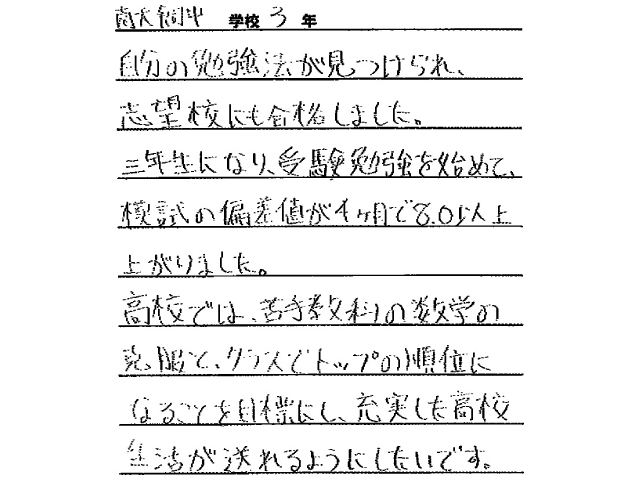 南大飼中 学校 3 年
自分の勉強法が見つけられ、
志望校にも合格しました。
三年生になり、受験勉強を始めて、
模試の偏差値が4ヶ月で8.0以上
上がりました。
高校では、苦手教科の数学の
克服と、クラスでトップの順位に
なることを目標にし、充実した高校
生活が送れるようにしたいです。